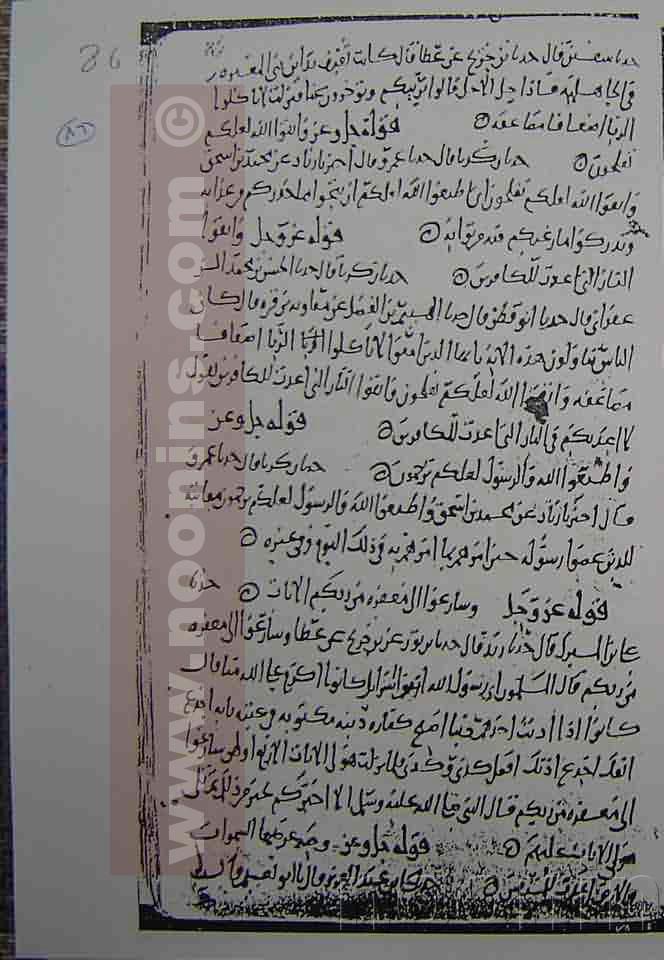 86
٨٦
حدثنا سفيان قال حدثنا ابن جريج عن عطا قال كانت ثقيف تداين بني المغيره
في الجاهليه فاذا حل الاجل قالوا نزيدكم وتوخرون عنا فنزلت لا تاكلوا
الربا اضعافا مضاعفه قوله جل وعز واتقوا الله لعلكم
تفلحون حدثنا زكريا قال حدثنا عمرو قال اخبرنا زياد عن محمد بن اسحق
واتقوا الله لعلكم تفلحون اي اطيعوا الله لعلكم ان تنجوا مما حذركم من عذابه
وتدركوا ما رغبكم فيه من ثوابه قوله عز وجل واتقوا
النار التي اعدت للكافرين حدثنا زكريا قال حدثنا الحسن بن محمد
قال حدثنا ابو قطن قال حدثنا الهيثم بن الفضل عن معاويه بن قره قال كان
الناس يتاولون هذه الايه يا ايها الذين امنوا لا تاكلوا الربا اضعافا
مضاعفه واتقوا الله لعلكم تفلحون واتقوا النار التي اعدت للكافرين
لا اعذبكم في النار التي اعدت للكافرين قوله جل وعز
واطيعوا الله والرسول لعلكم ترحمون حدثنا زكريا قال حدثنا عمرو
قال اخبرنا زياد عن محمد بن اسحق واطيعوا الله والرسول لعلكم ترحمون معاتبه
للذين عصوا رسوله حين امرهم بما امرهم به في ذلك اليوم وفي غيره
قوله عز وجل وسارعوا الى مغفره من ربكم الايات حدثنا
علي بن المبرك قال حدثنا زيد قال حدثنا ابن ثور عن ابن جريج عن عطا وسارعوا الى مغفره
من ربكم قال المسلمون اي رسول الله ابنوا اسرايل كانوا اكرم على الله منا قال
كانوا اذا اذنب احدهم ذنبا اصبح كفاره ذنبه مكتوبه في عتبه بابه اجدع
انفك اجدع اذنك افعل كذى وكذى فلما نزلت هولى الايات الا ربوا وطي سارعوا
الى مغفره من ربكم قال النبي صلى الله عليه وسلم الا اخبركم بخير من ذلك
هولى الايات عليهم قوله جل وعز وجنه عرضها السموات
والارض اعدت للمتقين
© www.noonins.com